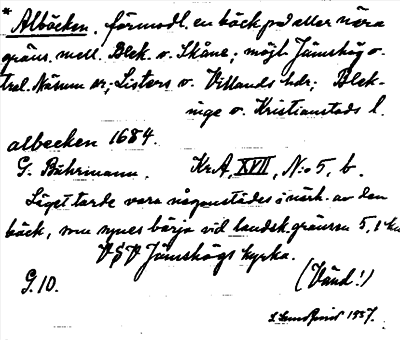 * Albäcken, förmodl. en bäck på eller nära
gräns. mell. Blek. o. Skåne; möjl. Jämshög o.
trol. Näsum sr; Listers o. Villands hdr; Blek-
inge o. Kristianstads l.
albecken 1684.
G. Buhrmann. Kr.A, XVII, N:o 5, b.
Läget torde vara någonstädes i närh. av den
bäck, som synes börja vid landsk.gränsen 5,1 km
VSV Jämshögs kyrka.
G.10. (Vänd!)
1957.